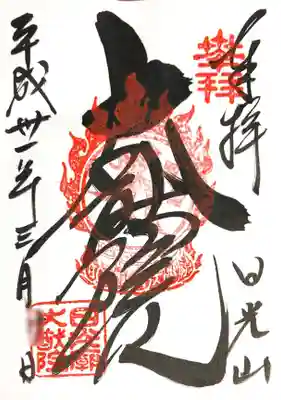 奉拝
日光山
登拝
大猷院
平成廿一年三月 日
日光廟大猷院